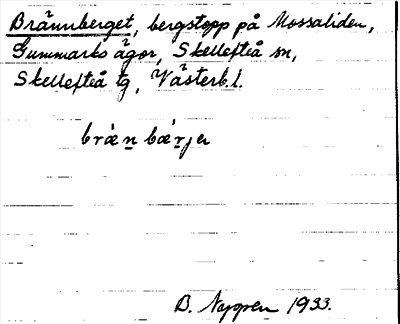 Brännberget, bergstopp på Mossaliden,
Gummarks ägor, Skellefteå sn,
Skellefteå tg, Västerb. l.
bræ´n bæ`rjer
B. Nygren 1933.